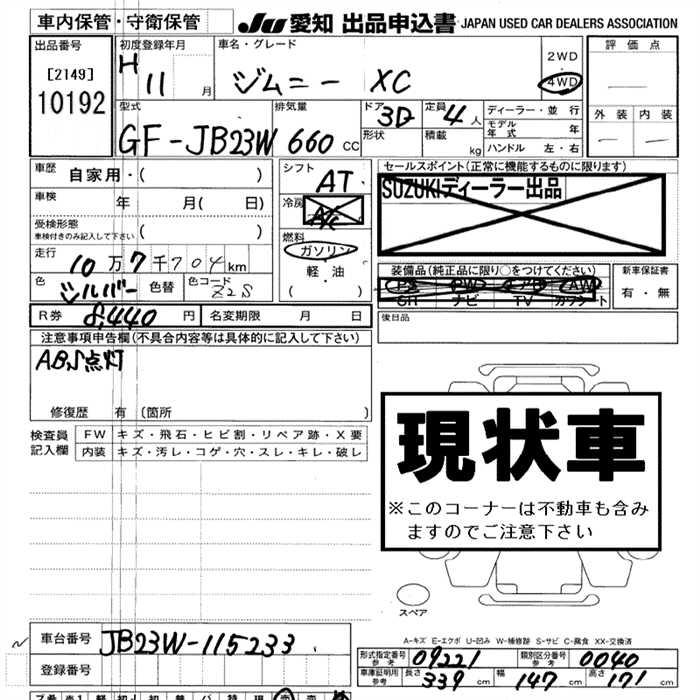 車内保管・守衛保管
JU 愛知 出品申込書 JAPAN USED CAR DEALERS ASSOCIATION
出品番号
[2149]
10192
初度登録年月
H 11 月
車名・グレード
ジムニー XC
2WD
・
4WD
評価点
外装 内装
型式
GF-JB23W
排気量
660 cc
ドア 3D
形状
定員 4 人
積載 kg
ディーラー・並行
モデル年式 年
ハンドル 左・右
車歴 自家用・( )
車検 年 月( 日)
受検形態
車検付きのみ記入して下さい ( )
走行
10万7千704km
色 シルバー 色替
色コード Z2S
シフト
AT
冷房
A/C
燃料
ガソリン
・
軽・油
( )
セールスポイント(正常に機能するものに限ります)
SUZUKIディーラー出品
装備品(純正品に限り○をつけてください)
PS PW エアB AW
SH ナビ TV カワシート
新車保証書
有・無
R券 8,440 円
名変期限 月 日
後日品
注意事項申告欄(不具合内容等は具体的に記入して下さい)
ABS点灯
修復歴 有 (箇所 )
検査員
記入欄
FW キズ・飛石・ヒビ割・リペア跡・X要
内装 キズ・汚レ・コゲ・穴・スレ・キレ・破レ
現状車
※このコーナーは不動車も含みますのでご注意下さい
スペア
A-キズ E-エクボ U-凹み W-補修跡 S-サビ C-腐食 XX-交換済
車台番号 JB23W-115233
登録番号
形式指定番号
参考 09221
類別区分番号
参考 0040
車庫証明用
参考
長さ 339 cm
幅 147 cm
高さ 171 cm